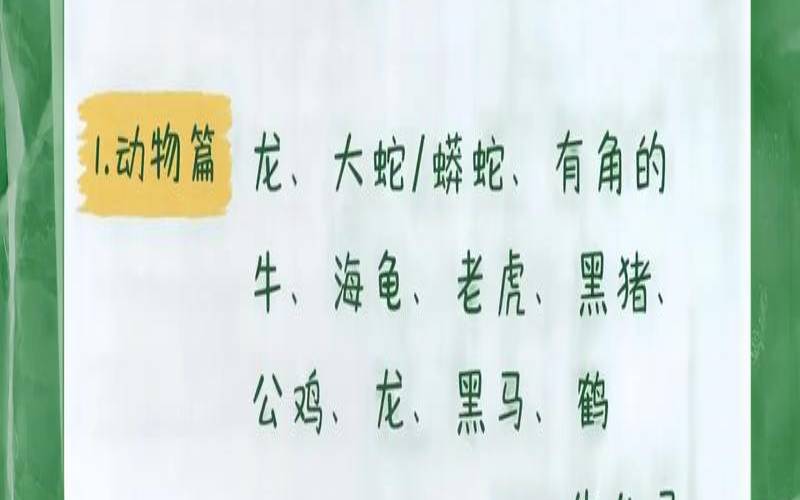 1.动物篇 龙、大蛇/蟒蛇、有角的
牛、海龟、老虎、黑猪、
公鸡、龙、黑马、鹤